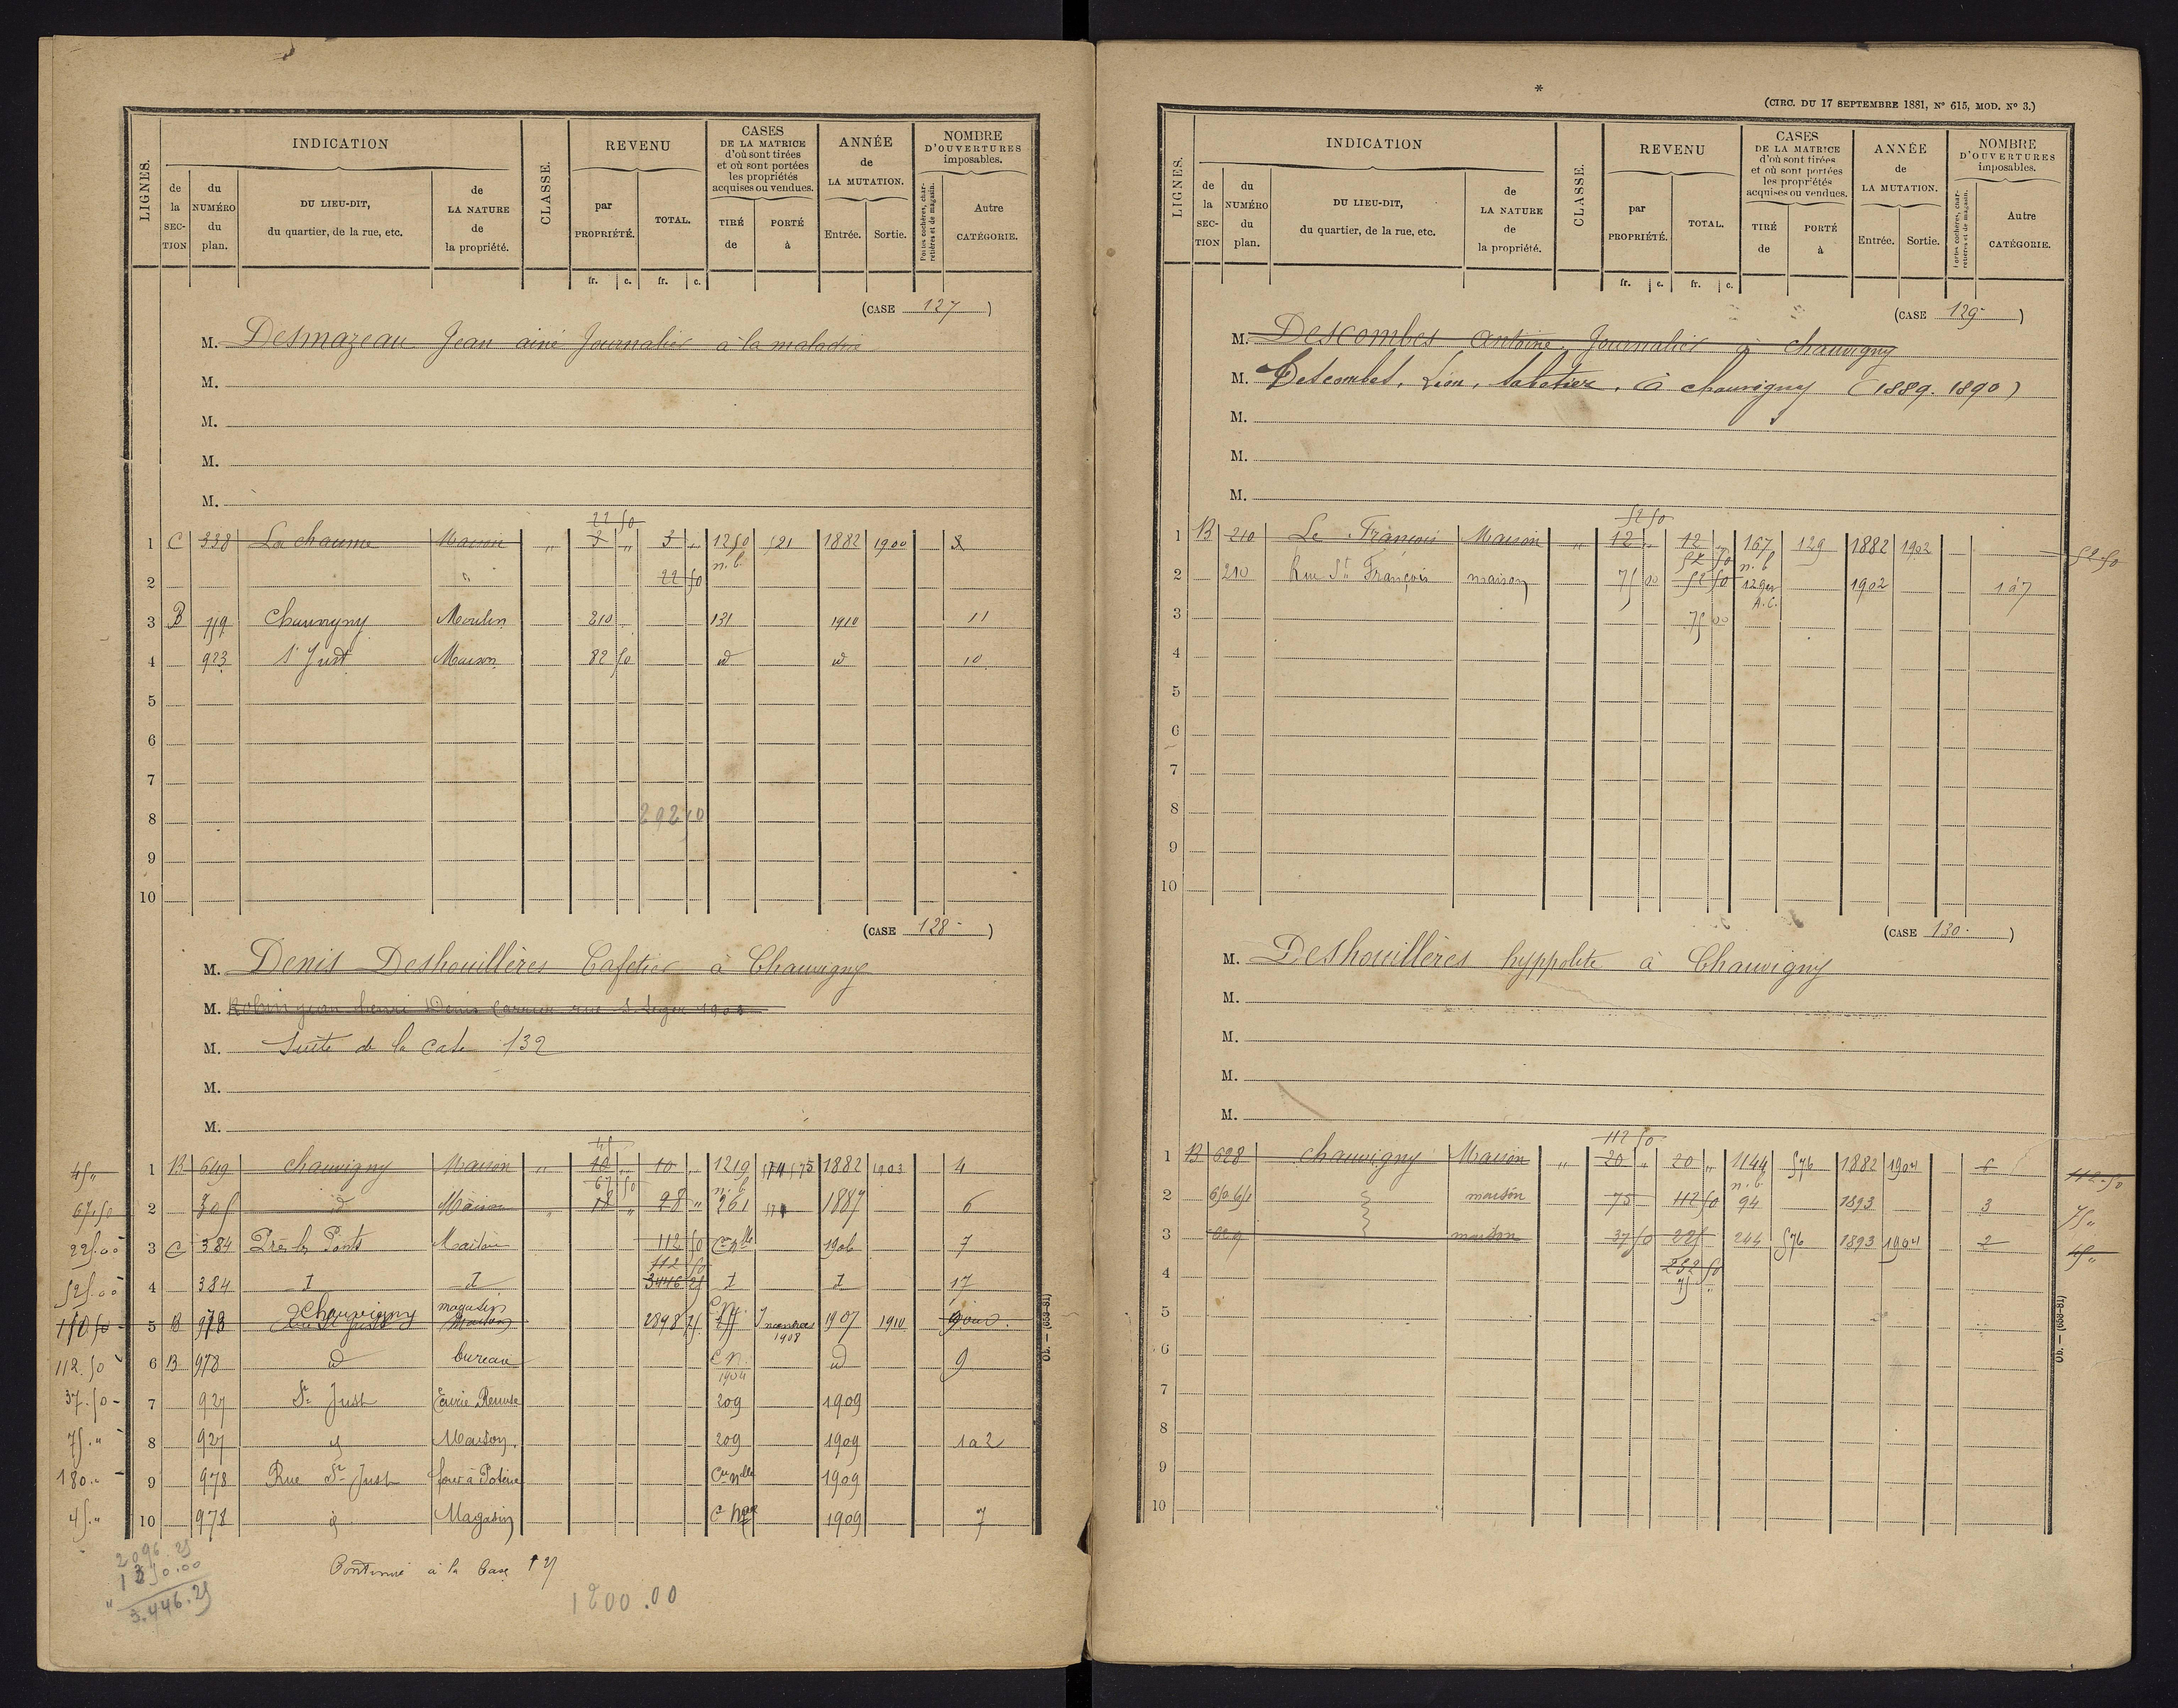 LIGNES.
INDICATION
de la SECTION
du NUMÉRO du plan.
DU LIEU-DIT, du quartier, de la rue, etc.
de LA NATURE de la propriété.
CLASSE.
REVENU
par PROPRIÉTÉ.
TOTAL.
CASES DE LA MATRICE d'où sont tirées et où sont portées les propriétés acquises ou vendues.
TIRÉ de
PORTÉ à
ANNÉE de LA MUTATION.
Entrée.
Sortie.
NOMBRE D'OUVERTURES imposables.
Portes cochères, charretières et de magasin.
Autre CATÉGORIE.
fr. c. fr. c.
(CASE 127)
M. Desmazeau Jean ainé Journalier à la maladrie
M.
M.
M.
M.
22 50
1 C 338 La chaume Maison " 3 " 3 " 1250 521 1882 1900
2 " 22 50 n. b.
3 B 759 Chauvigny Moulin 210 131 1910 11
4 923 St Just Maison 82 50 id id 10
5
6
7
8 292 50
9
10
(CASE 128)
M. Denis Deshouillères Cafetier à Chauvigny
M. Robin jean henri Denis Carrier rue St Leger
M. Suite de la Case 132
M.
M.
45
45 " 1 B 649 chauvigny Maison " 10 " 10 " 1219 1882 1903 4
67 50 n. b.
67.50 2 305 id Maison " 18 " 28 " 261 1887 6
225.00 3 C 384 Près les Ponts Maison 112 50 Con nlle 1906 7
112 50
525.00 4 384 d d 3446 25 d d 17
150 50 5 B 978 Chauvigny magasin Maison 2898 25 1907 1910
1908
112.50 6 B 978 id bureau C n. id 9
1904
37.50 7 927 St Just Écurie Remise 209 1909
75." 8 927 id Maison 209 1909 1 à 2
180." 9 978 Rue St Just four à Poterie Con nlle 1909
45." 10 978 id Magasin C nlle 1909 7
2096.25
1350.00
3.446.25
Continué à la Case
1200.00
Ob. — (653-81)
*
(CIRC. DU 17 SEPTEMBRE 1881, N° 615, MOD. N° 3.)
LIGNES.
INDICATION
de la SECTION
du NUMÉRO du plan.
DU LIEU-DIT, du quartier, de la rue, etc.
de LA NATURE de la propriété.
CLASSE.
REVENU
par PROPRIÉTÉ.
TOTAL.
CASES DE LA MATRICE d'où sont tirées et où sont portées les propriétés acquises ou vendues.
TIRÉ de
PORTÉ à
ANNÉE de LA MUTATION.
Entrée.
Sortie.
NOMBRE D'OUVERTURES imposables.
Portes cochères, charretières et de magasin.
Autre CATÉGORIE.
fr. c. fr. c.
(CASE 129)
M. Descombes Antoine Journalier à chauvigny
M. Descombes, Léon, sabotier, à chauvigny (1889. 1890)
M.
M.
M.
52 50
1 B 210 Le François Maison " 12 " 12 " 167 129 1882 1902 52-50
52 50 n. b
2 210 Rue St François maison 75 00 52 50 129 1902 1 à 7
A. C.
3 75 00
4
5
6
7
8
9
10
(CASE 130)
M. Deshouillères hyppolite à Chauvigny
M.
M.
M.
M.
112 50
1 B 628 chauvigny Maison " 20 " 20 " 1144 576 1882 1904 6 112-50
n. b
2 650.651 maison 75 112 50 94 1893 3 75"
3 maison 37 50 225 244 576 1893 1904 2
4 232 50
75 "
5
6
7
8
9
10
Ob. — (653-81)